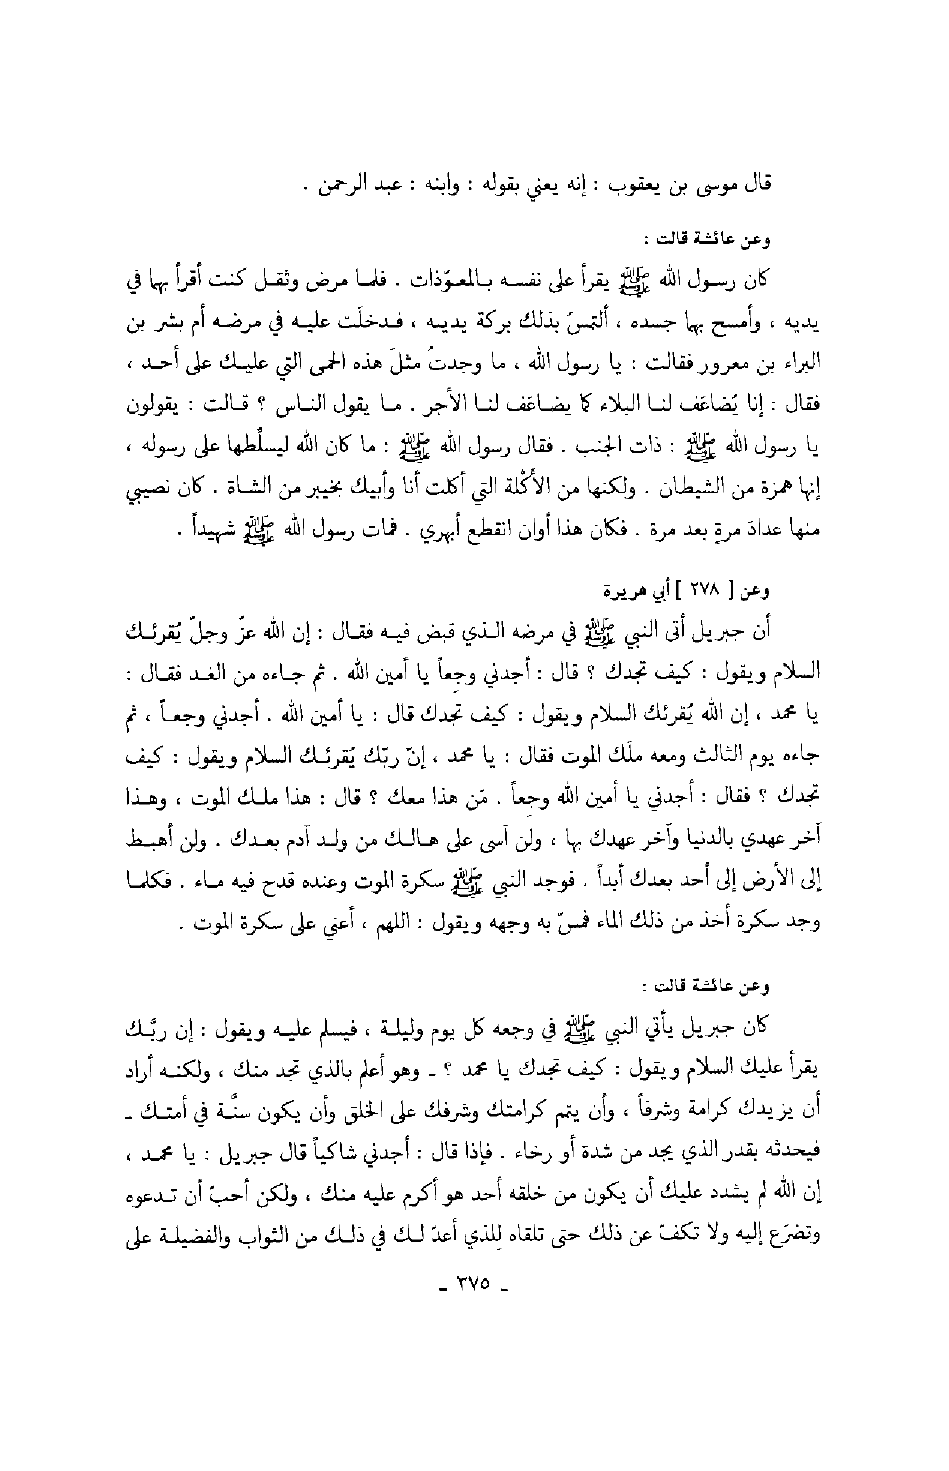 قال موسى بن يعقوب : إنه يعني بقوله : وابنه : عبد الرحمن .
وعن عائشة قالت :
كان رسول الله ﷺ يقرأ على نفسه بالمعوّذات . فلما مرض وثقل كنت أقرأ بها في
يديه ، وأمسح بها جسده ، ألتمسُ بذلك بركة يديه ، فدخلَت عليه في مرضه أم بشر بن
البراء بن معرور فقالت : يا رسول الله ، ما وجدتُ مثلَ هذه الحمى التي عليك على أحد ،
فقال : إنا يُضاعَف لنا البلاء كما يضاعَف لنا الأجر . ما يقول الناس ؟ قالت : يقولون
يا رسول الله ﷺ : ذات الجنب . فقال رسول الله ﷺ : ما كان الله ليسلِّطها على رسوله ،
إنها همزة من الشيطان . ولكنها من الأُكْلة التي أكلت أنا وأبيك بخيبر من الشاة . كان نصيبي
منها عدادَ مرةٍ بعد مرة . فكان هذا أوان انقطع أبهري . فمات رسول الله ﷺ شهيداً .
وعن [ ٢٧٨ ] أبي هريرة
أن جبريل أتى النبي ﷺ في مرضه الذي قبض فيه فقال : إن الله عزّ وجلّ يُقرئك
السلام ويقول : كيف تجدك ؟ قال : أجدني وجِعاً يا أمين الله . ثم جاءه من الغد فقال :
يا محمد ، إن الله يُقرئك السلام ويقول : كيف تجدك قال : يا أمين الله . أجدني وجعاً ، ثم
جاءه يوم الثالث ومعه ملَك الموت فقال : يا محمد ، إنّ ربّك يُقرئك السلام ويقول : كيف
تجدك ؟ فقال : أجدني يا أمين الله وجِعاً . مَن هذا معك ؟ قال : هذا ملك الموت ، وهذا
آخر عهدي بالدنيا وآخر عهدك بها ، ولن آسى على هالك من ولد آدم بعدك . ولن أهبط
إلى الأرض إلى أحد بعدك أبداً . فوجد النبي ﷺ سكرة الموت وعنده قدح فيه ماء . فكلما
وجد سكرة أخذ من ذلك الماء فمسّ به وجهه ويقول : اللهم ، أعني على سكرة الموت .
وعن عائشة قالت :
كان جبريل يأتي النبي ﷺ في وجعه كل يوم وليلة ، فيسلم عليه ويقول : إن ربّك
يقرأ عليك السلام ويقول : كيف تجدك يا محمد ؟ ـ وهو أعلم بالذي تجد منك ، ولكنه أراد
أن يزيدك كرامة وشرفاً ، وأن يتم كرامتك وشرفك على الخلق وأن يكون سنَّة في أمتك ـ
فيحدثه بقدر الذي يجد من شدة أو رخاء . فإذا قال : أجدني شاكياً قال جبريل : يا محمد ،
إن الله لم يشدد عليك أن يكون من خلقه أحد هو أكرم عليه منك ، ولكن أحبّ أن تدعوه
وتضرّع إليه ولا تكفّ عن ذلك حتى تلقاه لِلذي أعدّ لك في ذلك من الثواب والفضيلة على
ـ ٣٧٥ ـ